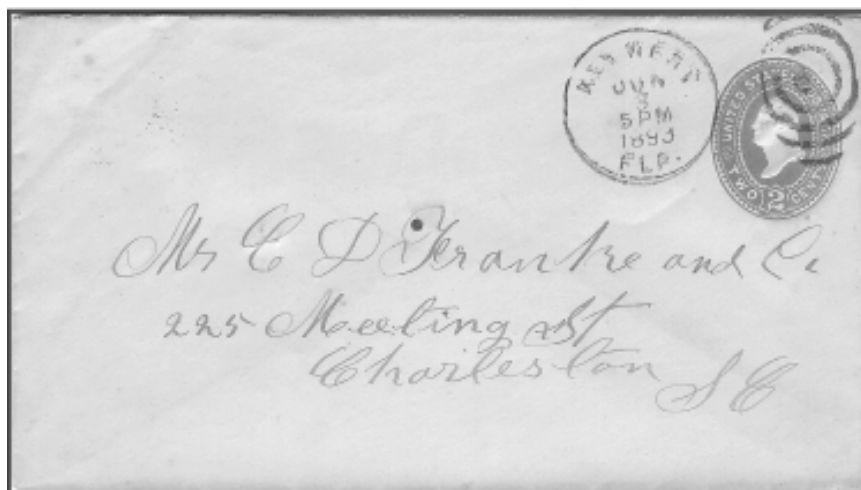 KEY WEST
JUN
3
5 PM
1893
FLA.
UNITED STATES
TWO 2 CENTS
Mr C D Franke and Co
225 Meeting St
Charleston S C